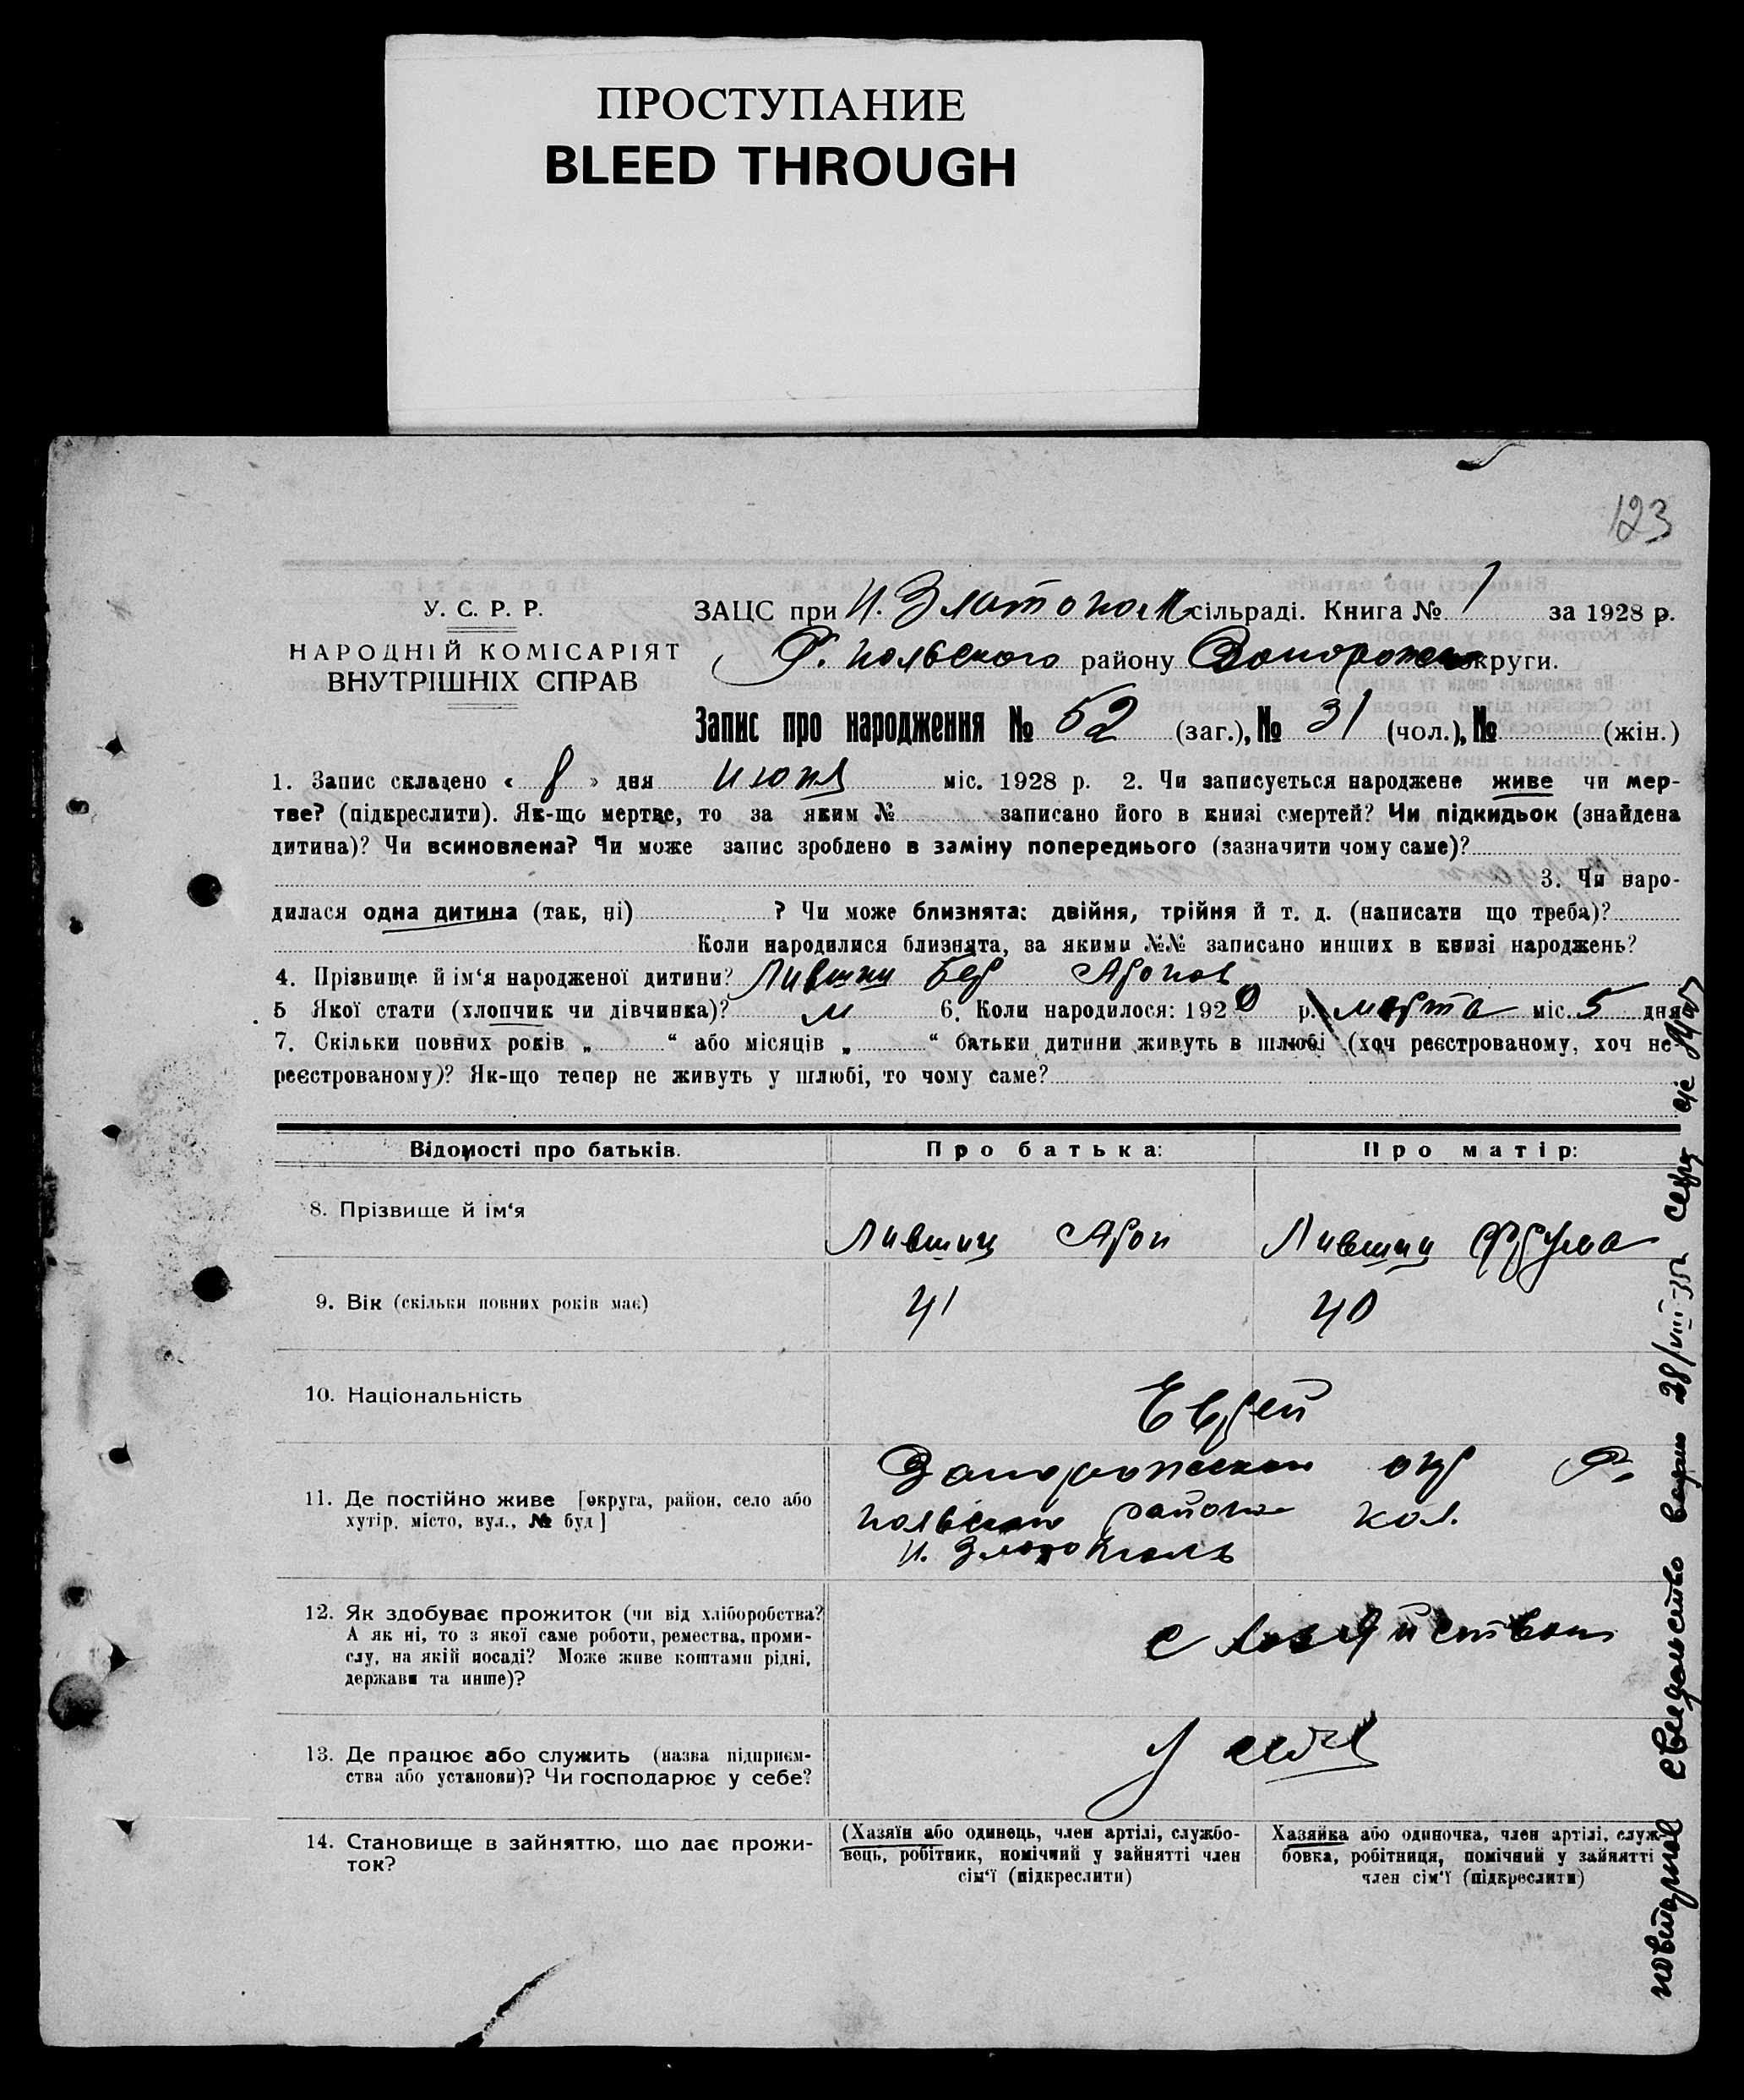 ПРОСТУПАНИЕ
BLEED THROUGH
123
У. С. Р. Р.
НАРОДНІЙ КОМІСАРІЯТ
ВНУТРІШНІХ СПРАВ
ЗАЦС при Н. Златопол сільраді. Книга № 1 за 1928 р.
польского району округи.
Запис про народження № 52 (заг.), № 31 (чол.), № (жін.)
1. Запис складено « 8 » дня июня міс. 1928 р. 2. Чи записується народжене живе чи мер-
тве? (підкреслити). Як-що мертве, то за яким № записано його в книзі смертей? Чи підкидьок (знайдена
дитина)? Чи всиновлена? Чи може запис зроблено в заміну попереднього (зазначити чому саме)?
3. Чи наро-
дилася одна дитина (так, ні) ? Чи може близнята: двійня, трійня й т. д. (написати що треба)?
Коли народилися близнята, за якими №№ записано инших в книзі народжень?
4. Прізвище й ім‘я народженої дитини? Лившиц Бер Аронов
5 Якої стати (хлопчик чи дівчинка)? м 6. Коли народилося: 1920 р. марта міс. 5 дня
7. Скільки повних років „ “ або місяців „ “ батьки дитини живуть в шлюбі (хоч реєстрованому, хоч не-
реєстрованому)? Як-що тепер не живуть у шлюбі, то чому саме?
Відомості про батьків.
Про батька:
Про матір:
8. Прізвище й ім‘я
Лившиц Арон
Лившиц Фрума
9. Вік (скільки повних років має)
41
40
10. Національність
Еврей
11. Де постійно живе [округа, район, село або
хутір, місто, вул., № буд]
Запорожская окр
район кол.
Н. Златополь
12. Як здобуває прожиток (чи від хліборобства?
А як ні, то з якої саме роботи, ремества, проми-
слу, на якій посаді? Може живе коштами рідні,
держави та инше)?
с хозяйством
13. Де працює або служить (назва підприєм-
ства або установи)? Чи господарює у себе?
У себя
14. Становище в зайняттю, що дає прожи-
ток?
(Хазяїн або одинець, член артілі, службо-
вець, робітник, помічний у зайнятті член
сім‘ї (підкреслити)
Хазяйка або одиночка, член артілі, служ-
бовка, робітниця, помічний у зайнятті
член сім‘ї (підкреслити)
повторное свидетельство выдано 28/VIII